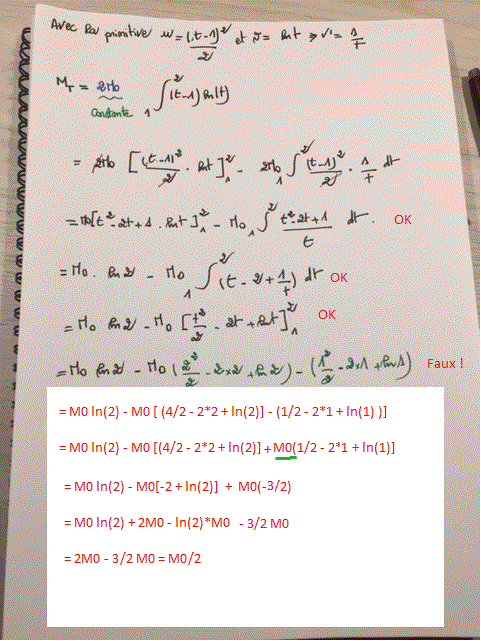 Avec la primitive u = (t-1)²/2 et v = ln t → v' = 1/t
Mr = 2M0 ∫₁² (t-1) ln(t)
constante
= 2M0 [(t-1)²/2 . ln t]₁² - 2M0 ∫₁² (t-1)²/2 . 1/t dt
= M0[t²-2t+1 . ln t]₁² - M0 ∫₁² t²-2t+1/t dt. OK
= M0 . ln 2 - M0 ∫₁² (t - 2 + 1/t) dt OK
= M0 ln 2 - M0 [t²/2 - 2t + ln t]₁² OK
= M0 ln 2 - M0 (2²/2 - 2×2 + ln 2) - (1²/2 - 2×1 + ln 1) Faux !
= M0 ln(2) - M0 [ (4/2 - 2*2 + ln(2)] - (1/2 - 2*1 + ln(1) )]
= M0 ln(2) - M0 [(4/2 - 2*2 + ln(2)] + M0(1/2 - 2*1 + ln(1)]
= M0 ln(2) - M0[-2 + ln(2)] + M0(-3/2)
= M0 ln(2) + 2M0 - ln(2)*M0 - 3/2 M0
= 2M0 - 3/2 M0 = M0/2